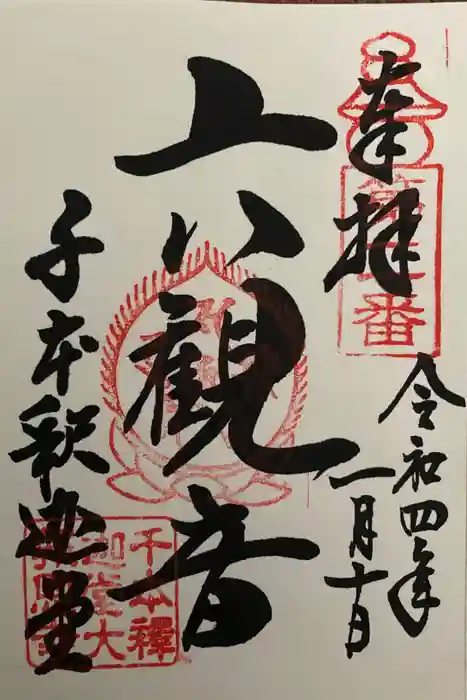 奉拝
令和四年
一月十日
六観音
千本釈迦堂
千本釋
迦堂大